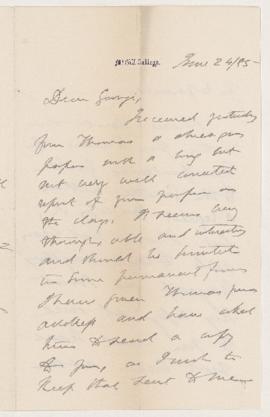 McGill College.
June 24/95-
Dear George,
Received yesterday
from Thomas a
paper with a long but
not very well corrected
report of your paper on
the clays. It seems very
thorough, able and
and should be printed
in some permanent form
I have given Thomas your
address and have asked
him to send a copy
to you, as I wish to
keep that sent to me